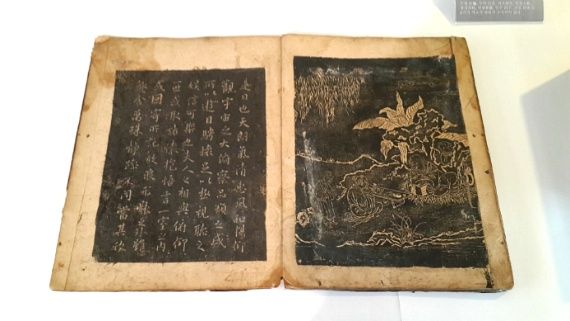 是日也天朗氣清惠風和暢仰
觀宇宙之大俯察品類之盛
所以遊目騁懷足以極視聽之
娛信可樂也夫人之相與俯仰
一世或取諸懷抱悟言一室之內
或因寄所託放浪形骸之外雖
趣舍萬殊靜 同當其欣